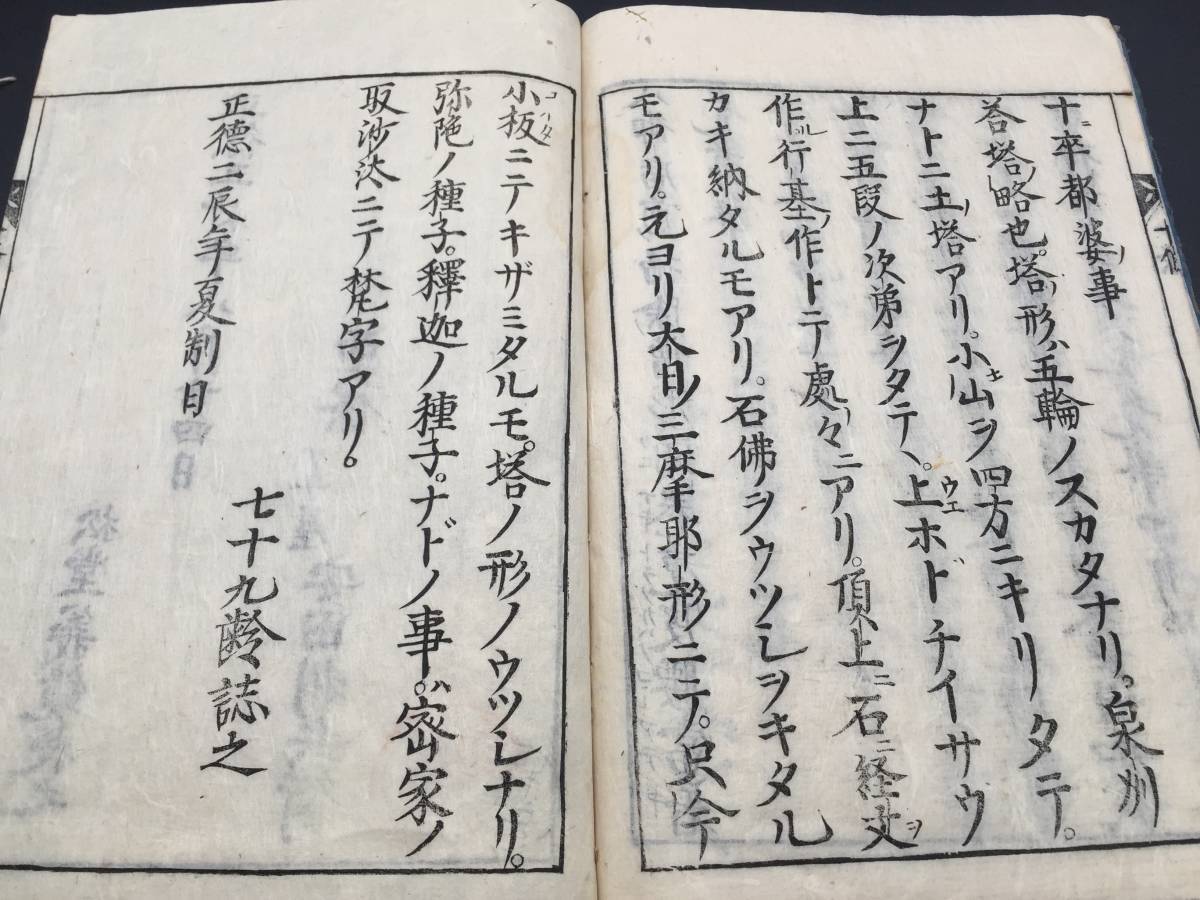 十ニ卒都婆ノ事
荅塔ノ略也。塔ノ形ハ五輪ノスカタナリ。泉州
ナトニ土ノ塔アリ。小キ山ヲ四方ニキリタテ。
上ニ五段ノ次第ヲタテヽ。上ホドチイサウ
作ル行基ノ作トテ處々ニアリ。頂ノ上ニ石ニ経文ヲ
カキ納タルモアリ。石佛ヲウツシヲキタル
モアリ。元ヨリ大日ノ三摩耶形ニテ。只今ノ
小板ニテキザミタルモ。塔ノ形ノウツシナリ。
弥陀ノ種子。釋迦ノ種子。ナドノ事ハ。密家ノ
取沙汰ニテ梵字アリ。
正徳二辰年夏制日
七十九齡誌之